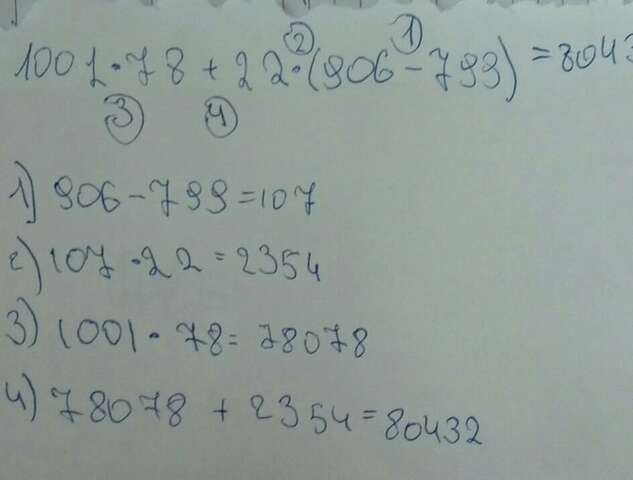 ② ①
1001·78+22·(906-799)=8043
③ ④
1) 906-799=107
2) 107·22=2354
3) 1001·78=78078
4) 78078+2354=80432